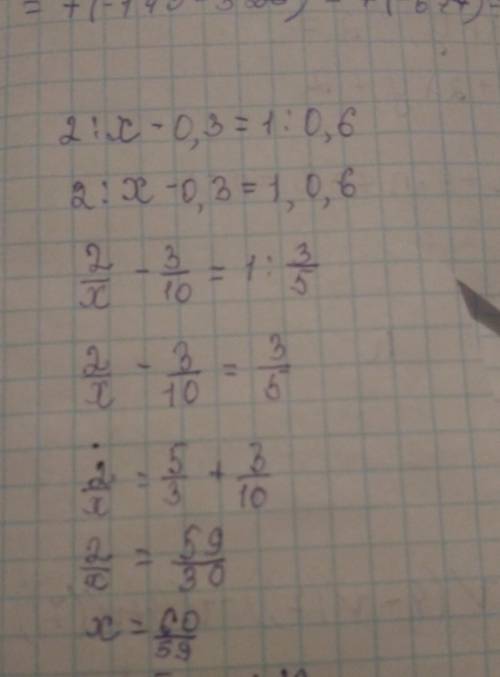 2 : x - 0,3 = 1 : 0,6
2 : x - 0,3 = 1, 0,6
2/x - 3/10 = 1 : 3/5
2/x - 3/10 = 3/5
2/x = 5/3 + 3/10
2/x = 59/30
x = 60/59